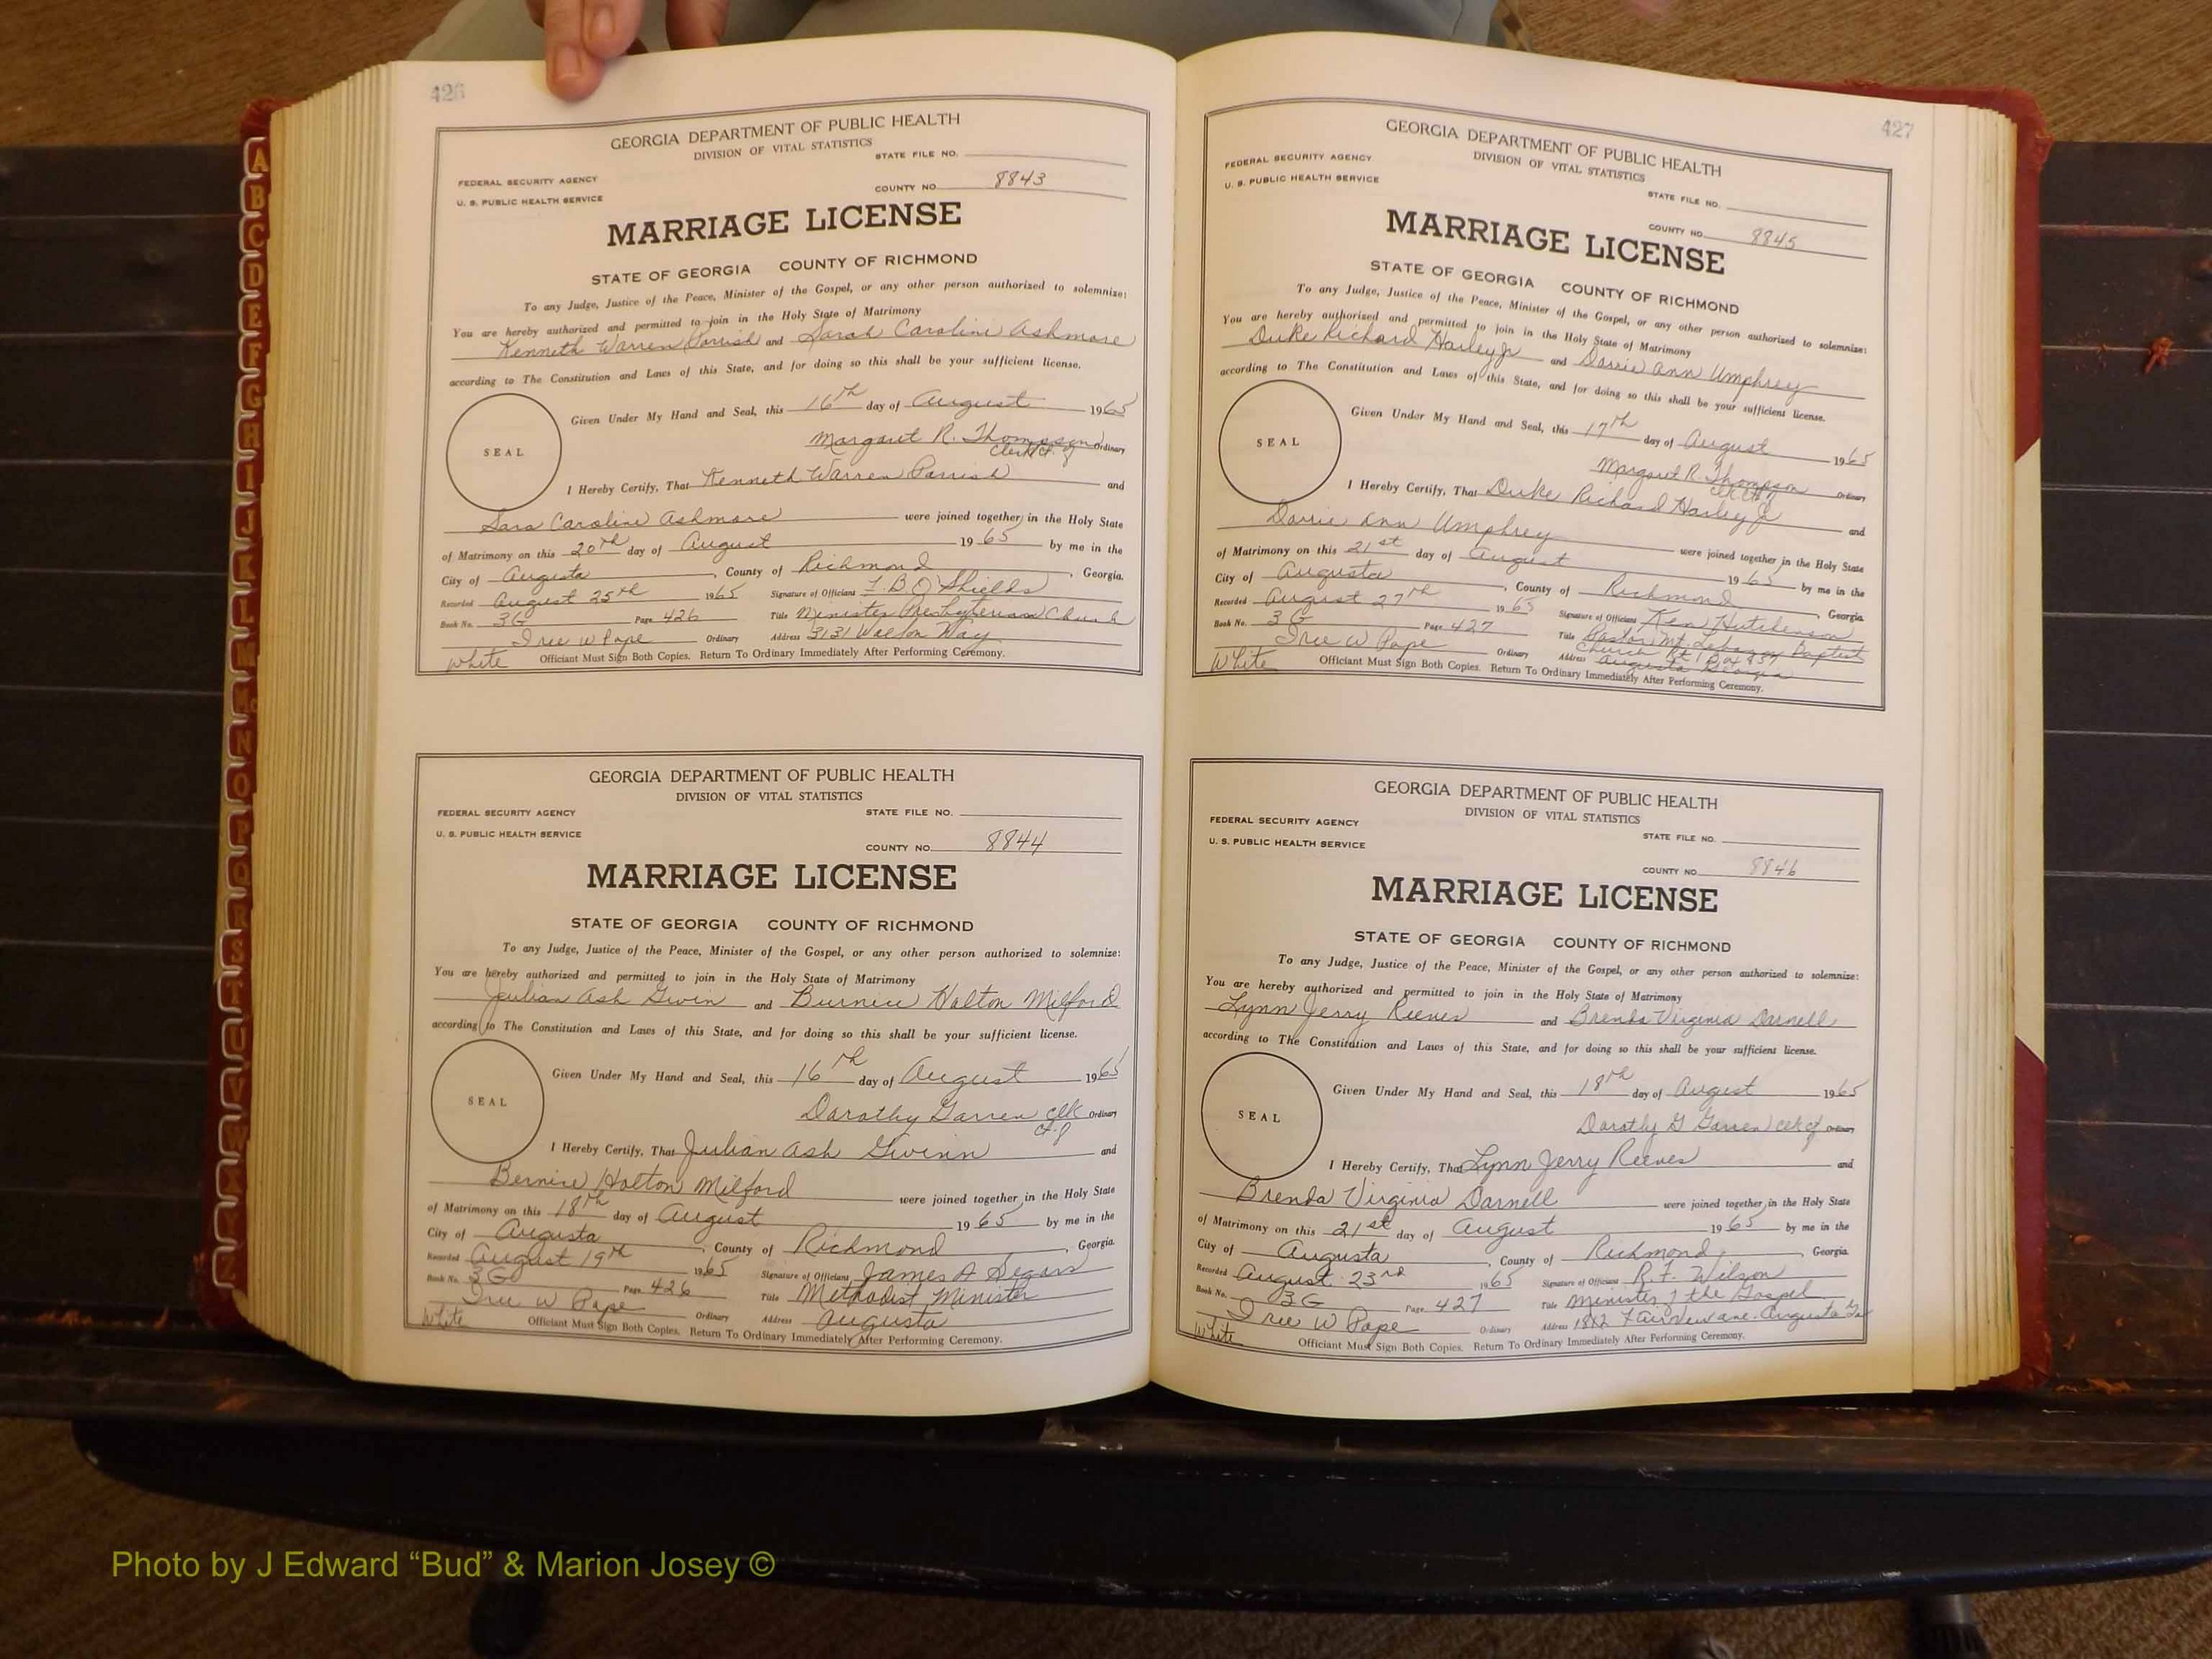 426
GEORGIA DEPARTMENT OF PUBLIC HEALTH
DIVISION OF VITAL STATISTICS
STATE FILE NO.
FEDERAL SECURITY AGENCY
U. S. PUBLIC HEALTH SERVICE
COUNTY NO. 8843
MARRIAGE LICENSE
STATE OF GEORGIA COUNTY OF RICHMOND
To any Judge, Justice of the Peace, Minister of the Gospel, or any other person authorized to solemnize:
You are hereby authorized and permitted to join in the Holy State of Matrimony
Kenneth Warren Parrish and Sarah Caroline Ashmore
according to The Constitution and Laws of this State, and for doing so this shall be your sufficient license.
SEAL
Given Under My Hand and Seal, this 16th day of August 1965
Margaret R. Thompson Ordinary
Clerk Ct. of
I Hereby Certify, That Kenneth Warren Parrish and
Sara Caroline Ashmore were joined together in the Holy State
of Matrimony on this 20th day of August 1965 by me in the
City of Augusta, County of Richmond, Georgia.
Recorded August 25th 1965 Signature of Officiant F. B. O'Shields
Book No. 3G Page 426 Title Minister Presbyterian Church
Iree W Pope Ordinary Address 3131 Walton Way
White Officiant Must Sign Both Copies. Return To Ordinary Immediately After Performing Ceremony.
GEORGIA DEPARTMENT OF PUBLIC HEALTH
DIVISION OF VITAL STATISTICS
FEDERAL SECURITY AGENCY STATE FILE NO.
U. S. PUBLIC HEALTH SERVICE
COUNTY NO. 8844
MARRIAGE LICENSE
STATE OF GEORGIA COUNTY OF RICHMOND
To any Judge, Justice of the Peace, Minister of the Gospel, or any other person authorized to solemnize:
You are hereby authorized and permitted to join in the Holy State of Matrimony
Julian Ash Gwin and Burnice Holton Milford
according to The Constitution and Laws of this State, and for doing so this shall be your sufficient license.
SEAL
Given Under My Hand and Seal, this 16th day of August 1965
Dorothy Garren clk Ordinary
ct. of
I Hereby Certify, That Julian Ash Gwinn and
Bernice Holton Milford were joined together in the Holy State
of Matrimony on this 18th day of August 1965 by me in the
City of Augusta, County of Richmond, Georgia.
Recorded August 19th 1965 Signature of Officiant James A Segars
Book No. 3G Page 426 Title Methodist Minister
Iree W Pope Ordinary Address Augusta
White Officiant Must Sign Both Copies. Return To Ordinary Immediately After Performing Ceremony.
427
GEORGIA DEPARTMENT OF PUBLIC HEALTH
DIVISION OF VITAL STATISTICS
FEDERAL SECURITY AGENCY
U. S. PUBLIC HEALTH SERVICE
STATE FILE NO.
COUNTY NO. 8845
MARRIAGE LICENSE
STATE OF GEORGIA COUNTY OF RICHMOND
To any Judge, Justice of the Peace, Minister of the Gospel, or any other person authorized to solemnize:
You are hereby authorized and permitted to join in the Holy State of Matrimony
Duke Richard Harley Jr and Dorrie Ann Umphrey
according to The Constitution and Laws of this State, and for doing so this shall be your sufficient license.
SEAL
Given Under My Hand and Seal, this 17th day of August 1965
Margaret R. Thompson Ordinary
I Hereby Certify, That Duke Richard Harley Jr and
Dorrie Ann Umphrey were joined together in the Holy State
of Matrimony on this 21st day of August 1965 by me in the
City of Augusta, County of Richmond, Georgia.
Recorded August 27th 1965 Signature of Officiant Ken Hutchenson
Book No. 3G Page 427 Title Pastor Mt. Lebanon Baptist
Church Rt 1 Box 857
Iree W Pope Ordinary Address Augusta Georgia
White Officiant Must Sign Both Copies. Return To Ordinary Immediately After Performing Ceremony.
GEORGIA DEPARTMENT OF PUBLIC HEALTH
DIVISION OF VITAL STATISTICS
FEDERAL SECURITY AGENCY
U. S. PUBLIC HEALTH SERVICE
STATE FILE NO.
COUNTY NO. 8846
MARRIAGE LICENSE
STATE OF GEORGIA COUNTY OF RICHMOND
To any Judge, Justice of the Peace, Minister of the Gospel, or any other person authorized to solemnize:
You are hereby authorized and permitted to join in the Holy State of Matrimony
Lynn Jerry Reeves and Brenda Virginia Darnell
according to The Constitution and Laws of this State, and for doing so this shall be your sufficient license.
SEAL
Given Under My Hand and Seal, this 18th day of August 1965
Dorothy G Garren clk of Ordinary
I Hereby Certify, That Lynn Jerry Reeves and
Brenda Virginia Darnell were joined together in the Holy State
of Matrimony on this 21st day of August 1965 by me in the
City of Augusta, County of Richmond, Georgia
Recorded August 23rd 1965 Signature of Officiant R. F. Wilson
Book No. 3G Page 427 Title Minister of the Gospel
Iree W Pope Ordinary Address Fairview ave. Augusta Ga
White Officiant Must Sign Both Copies. Return To Ordinary Immediately After Performing Ceremony.
A
B
C
D
E
F
G
H
I
J
K
L
M
Mc
N
O
P
Q
R
S
T
U
V
W
Z
Photo by J Edward “Bud” & Marion Josey ©